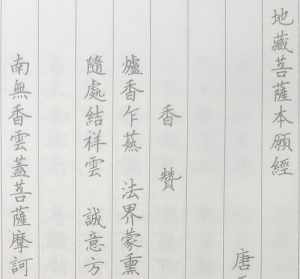 地藏菩薩本願經
唐
香 贊
爐香乍爇 法界蒙熏
隨處結祥雲 誠意方
南無香雲蓋菩薩摩訶